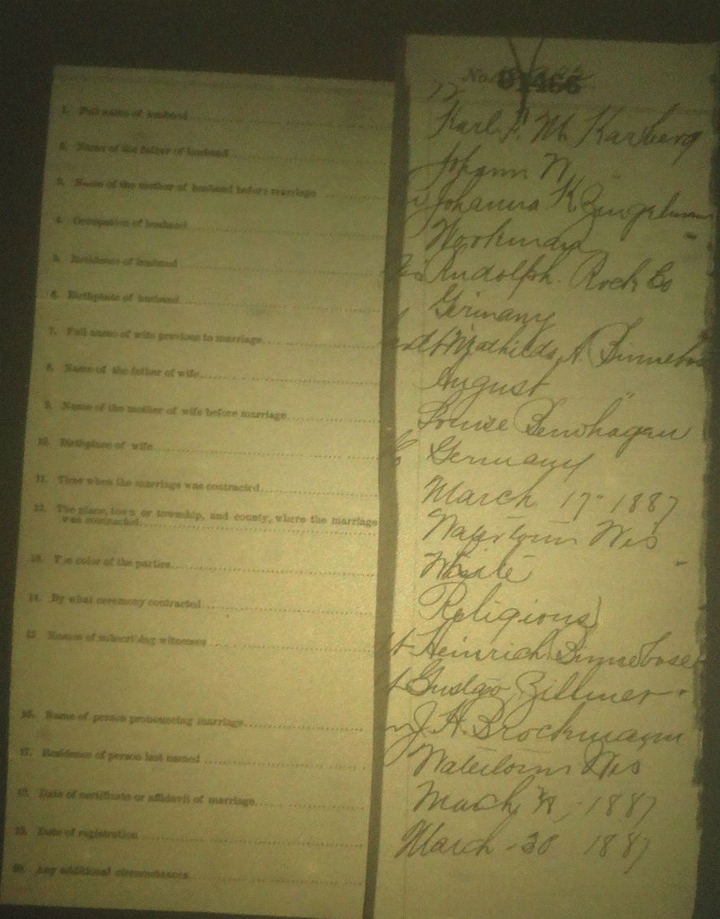 No. 01466
1. Full name of husband
2. Name of the father of husband
3. Name of the mother of husband before marriage
4. Occupation of husband
5. Residence of husband
6. Birthplace of husband
7. Full name of wife previous to marriage
8. Name of the father of wife
9. Name of the mother of wife before marriage
10. Birthplace of wife
11. Time when the marriage was contracted
12. The place, town or township, and county, where the marriage
was contracted
13. The color of the parties
14. By what ceremony contracted
15. Names of subscribing witnesses
16. Name of person pronouncing marriage
17. Residence of person last named
18. Date of certificate or affidavit of marriage
19. Date of registration
20. Any additional circumstances
Karl F. M. Karberg
Johann
Johanna K Zingelmann
Workman
Rudolph Rock Co
Germany
Mathilda A. Binnebose
August
Louise Benhagen
Germany
March 17 - 1887
Watertown Wis
White
Religious
Heinrich Binnebose
Gustav Zillmer
J. H. Brockmann
Watertown Wis
March 1887
March - 30 1887